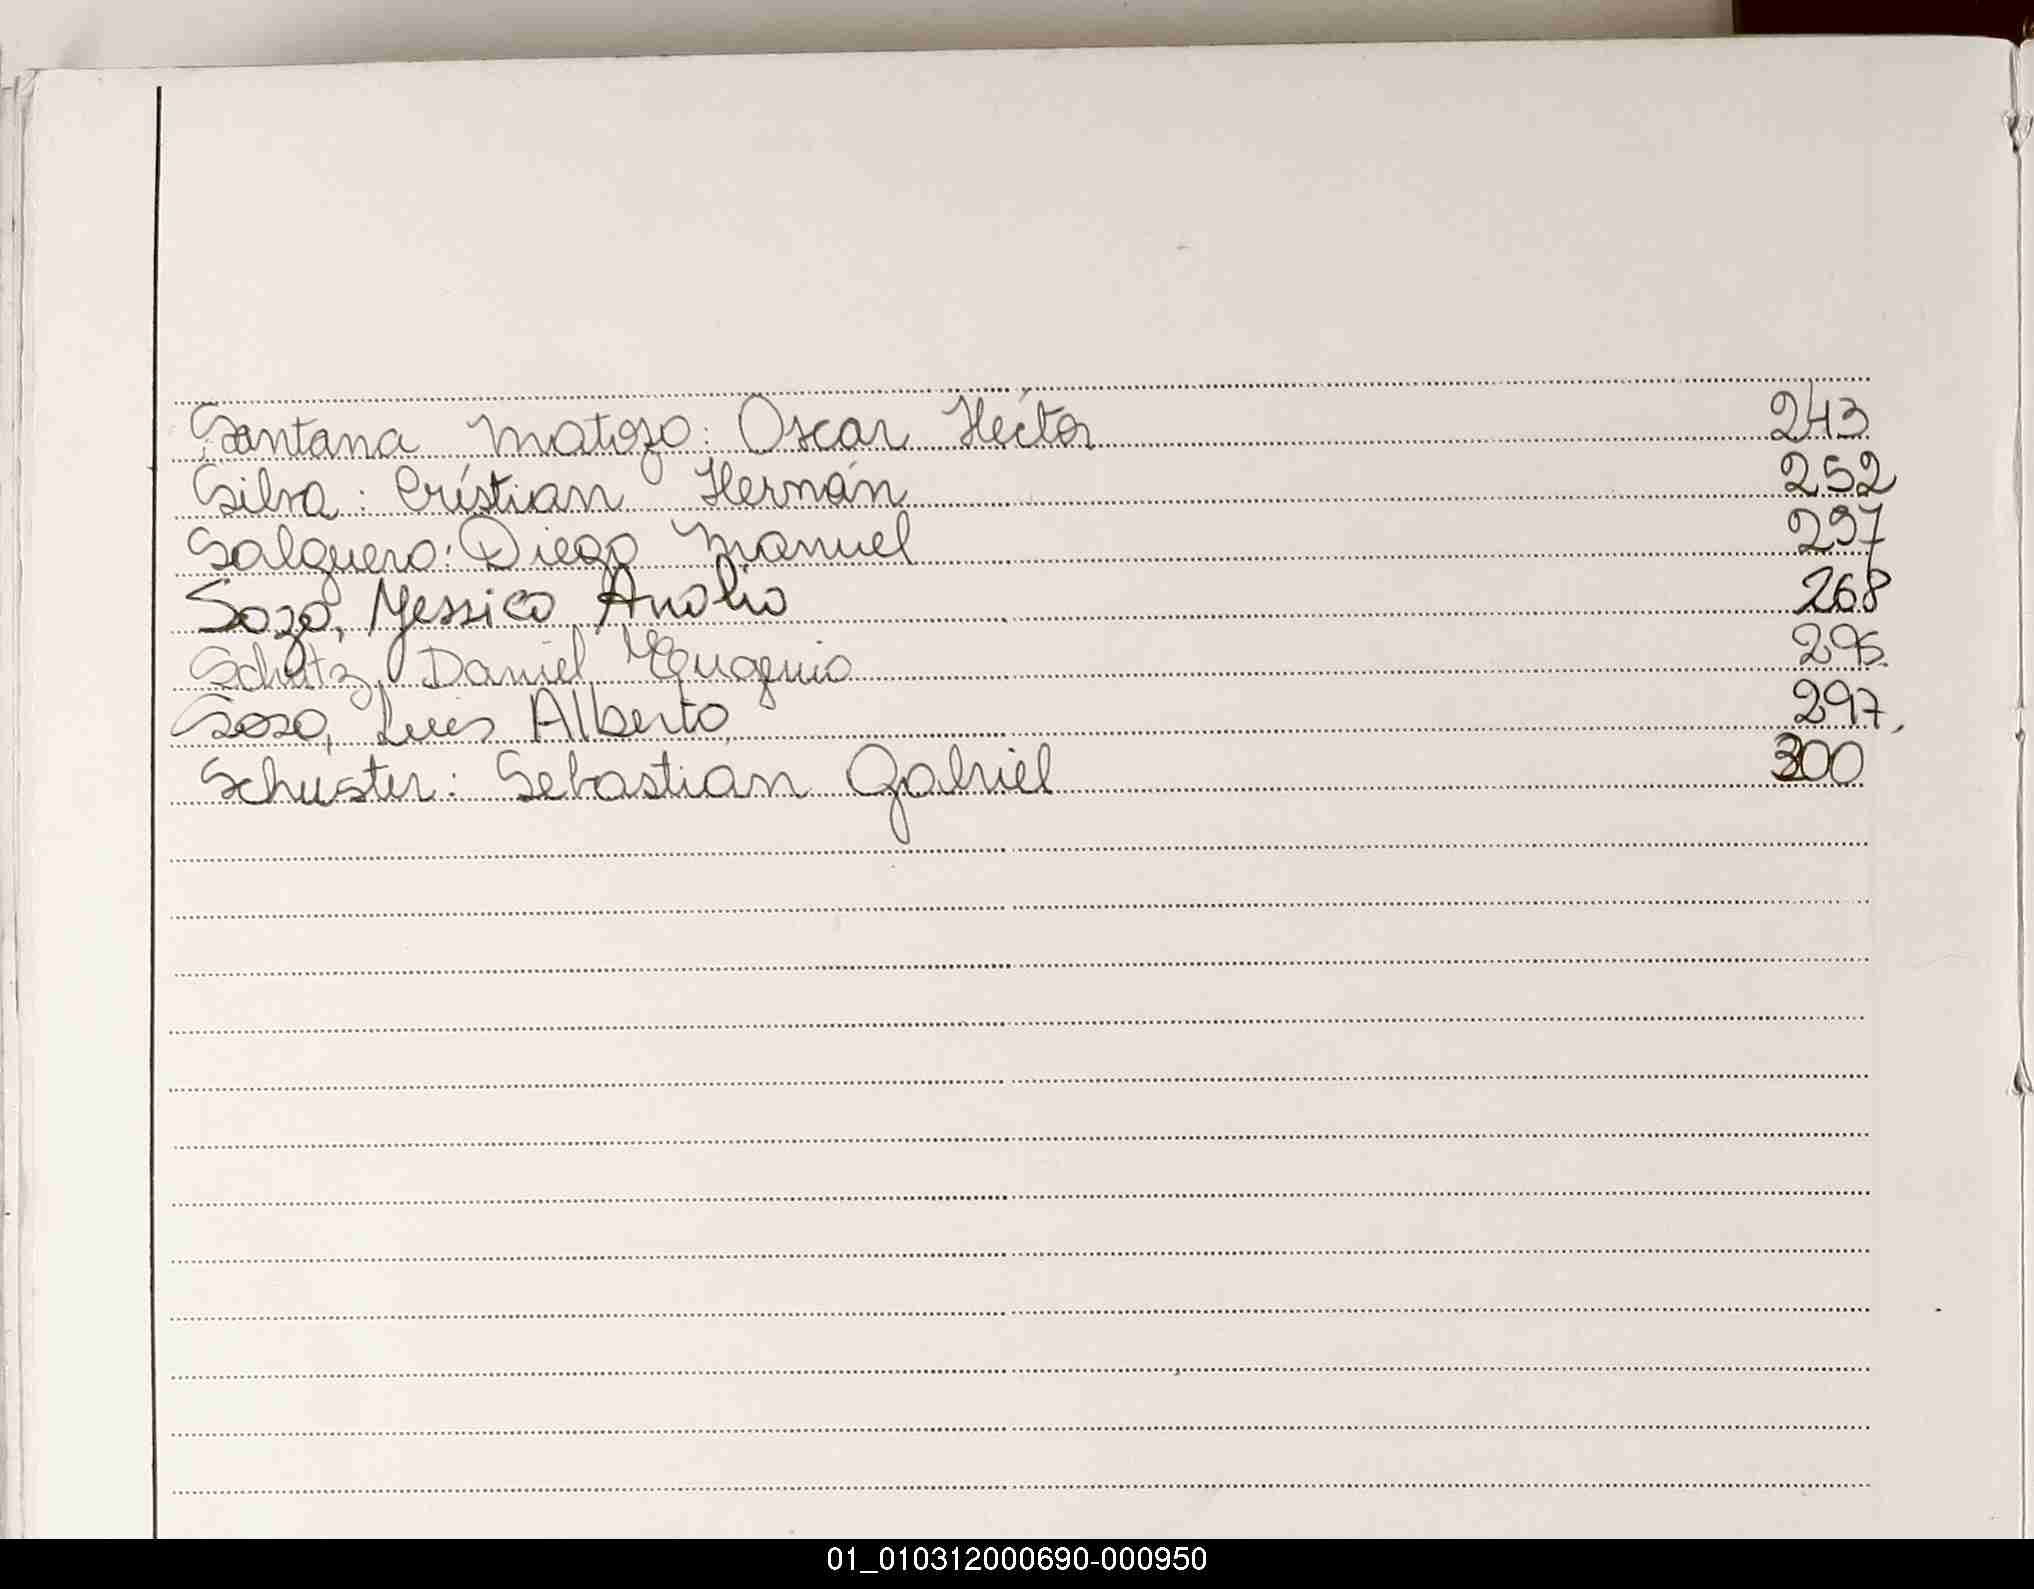 Santana Matozo: Oscar Héctor 243
Silva: Crístian Hernán 252
Salguero: Diego Manuel 297
Sozo, Yessica Analia 268
Schutz, Daniel Eugenio 295.
Soso, Luis Alberto, 297.
Schuster: Sebastian Gabriel 300
01_010312000690-000950